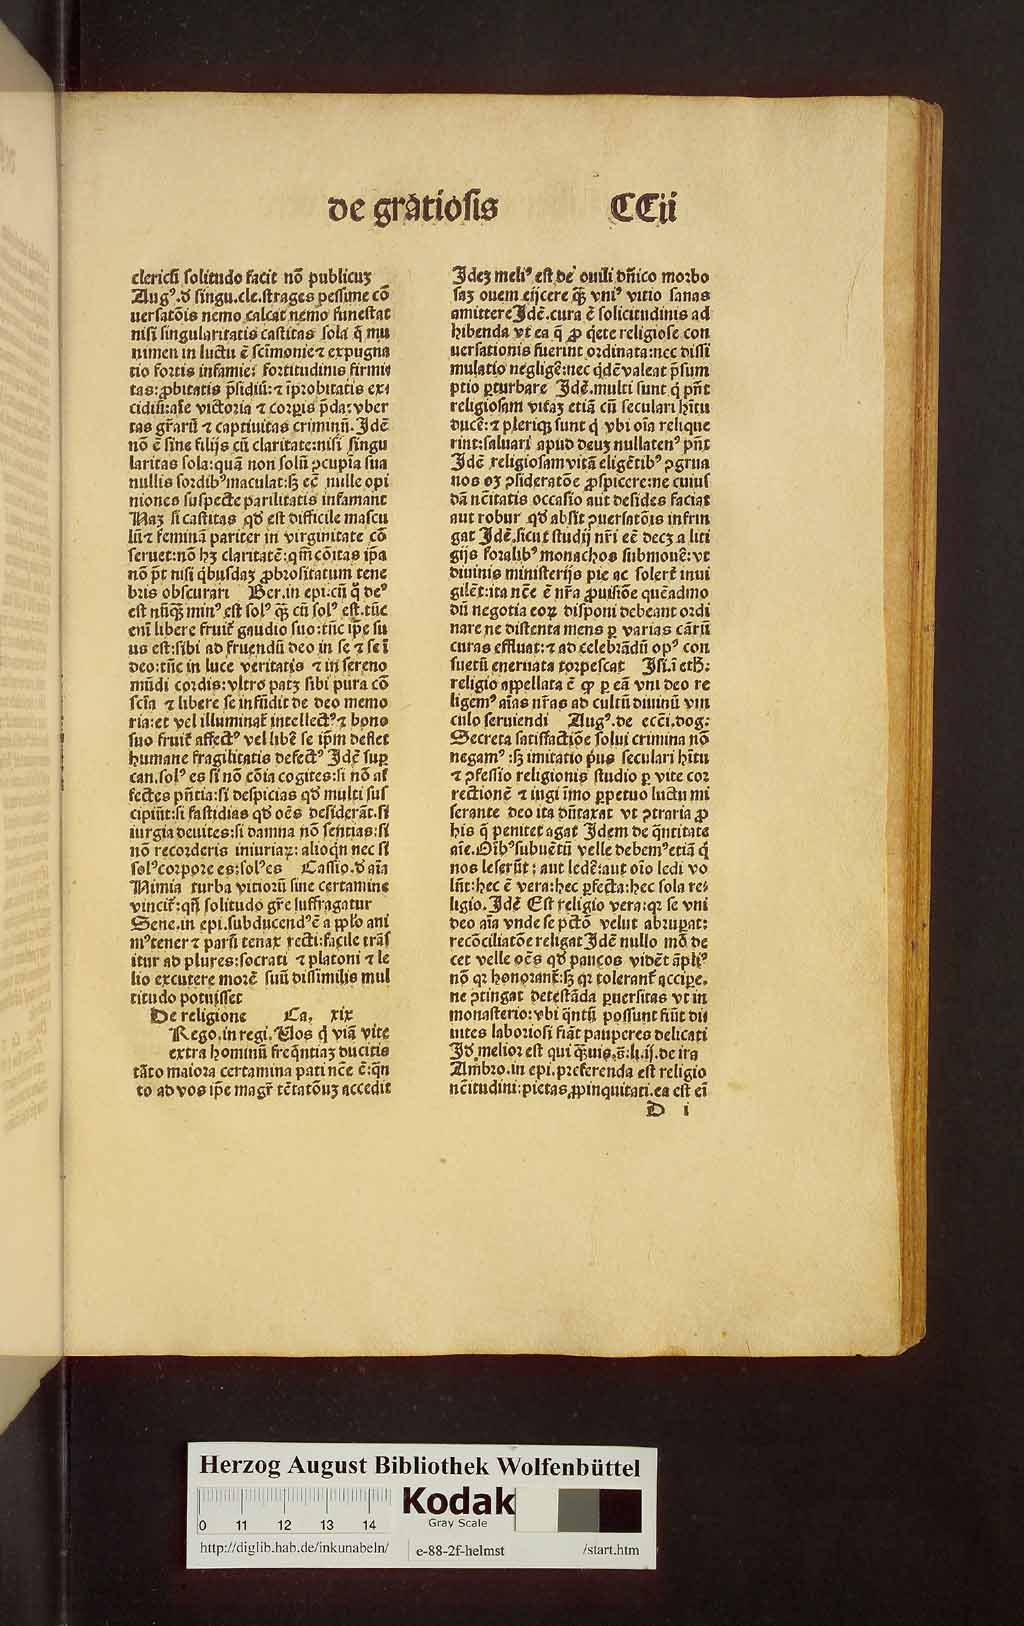 de grātiosis CCii
clericū solitudo facit nō publicuꝫ
Augꝰ.ð singu.cle.strages pessime cō
uersatōis nemo calcat nemo funestat
nisi singularitatis castitas sola q̄ mu
nimen in luctu ē scīmonie⁊ expugna
tio fortis infamie: fortitudinis firmi
tas:ꝓbitatis p̄sidiū:⁊ īprobitatis ex
cidiū:aīe victoria ⁊ corꝑis p̄da:vber
tas gr̄arū ⁊ captiuitas criminū.Idē
nō ē sine filijs cū claritate:nisi singu
laritas sola:quā non solū ꝯcupīa sua
nullis sordibꝰmaculat:sꝫ ec̄ nulle opi
niones suspecte parilitatis infamant
Naꝫ si castitas qd̄ est difficile mascu
lū⁊ feminā pariter in virginitate cō
seruet:nō hꝫ claritatē:qm̄ cōitas ip̄a
nō p̄t nisi q̄busdaꝫ ꝓbrositatum tene
bris obscurari Ber.in epi:cū q̄ deꝰ
est nūq̄ꝫ minꝰ est solꝰ q̄ꝫ cū solꝰ est.tūc
eni libere fruit᷑ gaudio suo:tūc ip̄e su
us est:sibi ad fruendū deo in se ⁊ se ī
deo:tūc in luce veritatis ⁊ in sereno
mūdi cordis:vltro patꝫ sibi pura cō
scīa ⁊ libere se infūdit de deo memo
ria:et vel illuminat᷑ intellectꝰ⁊ bono
suo fruit᷑ affectꝰ vel libē se ip̄m deflet
humane fragilitatis defectꝰ Idē sup̄
can.solꝰ es si nō cōia cogites:si nō af
fectes pn̄tia:si despicias qd̄ multi sus
cipiūt:si fastidias qd̄ oēs desiderāt.si
iurgia deuites:si damna nō sentias:si
nō recorderis iniuriaꝝ: alioqn nec si
solꝰcorpore es:solꝰes Cassio.ð aīa
Nimia turba vitiorū sine certamine
vincit᷑:qn̄ solitudo gr̄e suffragatur
Sene.in epi.subducendꝰē a pp̄lo ani
mꝰtener ⁊ parū tenax recti:facile trās
itur ad plures:socrati ⁊ platoni ⁊ le
lio excutere morē suū dissimilis mul
titudo potuisset
De religione Ca, xix
Rego.in regi.Uos q̄ viā vite
extra hominū freq̄ntiaꝫ ducitis
tāto maiora certamina pati nc̄e ē:q̄n
to ad vos ip̄e magr̄ tētatōuꝫ accedit
Ideꝫ meliꝰ est de ouili dn̄ico morbo
saꝫ ouem eijcere q̄ꝫ vniꝰ vitio sanas
amittere Idē.cura ē solicitudinis ad
hibenda vt ea q̄ ꝓ q̄ete religiose con
uersationis fuerint ordinata:nec dissi
mulatio negligē:nec q̄dē valeat p̄sum
ptio ꝑturbare Idē.multi sunt q̄ pn̄t
religiosam vitaꝫ etiā cū seculari hītu
ducē:⁊ pleriqꝫ sunt q̄ vbi oīa relique
rint:saluari apud deuꝫ nullatenꝰ pn̄t
Idē religiosam vitā eligētibꝰ ꝯgrua
nos oꝫ ꝯsideratōe ꝓspicere:ne cuius
dā nc̄itatis occasio aut desides faciat
aut robur qd̄ absit ꝯuersatōis infrin
gat Idē.sicut studij nr̄i eē decꝫ a liti
gijs foralibꝰ monachos submouē:vt
diuinis ministerijs pie ac solert᷑ inui
gilēt:ita nc̄e ē nr̄a ꝓuisiōe quēadmo
dū negotia eoꝝ disponi debeant ordi
nare ne distenta mens ꝑ varias cārū
curas effluat:⁊ ad celebrādū opꝰ con
suetū eneruata torpescat Isi.ī etħ:
religio appellata ē qꝫ ꝑ eā vni deo re
ligemꝰ aīas nr̄as ad cultū diuinū vin
culo seruiendi Augꝰ.de ecc̄i.dog:
Secreta satisfactiōe solui crimina nō
negamꝰ:sꝫ imitatio priꝰ seculari hītu
⁊ ꝓfessio religionis studio ꝑ vite cor
rectionē ⁊ iugi īmo ꝑpetuo luctu mi
serante deo ita dūtaxat vt ꝯtraria ꝓ
his q̄ penitet agat Idem de q̄ntitate
aīe.Oībꝰsubuētū velle debemꝰetiā q̄
nos leserūt: aut ledē:aut oīo ledi vo
lūt:hec ē vera:hec ꝑfecta:hec sola re
ligio.Idē Est religio vera:qꝫ se vni
deo aīa vnde se pctō velut abruꝑat:
recōciliatōe religat Idē nullo mō de
cet velle oēs qd̄ paucos vidēt āpliꝰ
nō qꝫ honorant᷑:sꝫ qꝫ tolerant᷑ accipe,
ne ꝯtingat detestāda ꝑuersitas vt in
monasterio:vbi q̄ntū possunt fiūt di
uites laboriosi fiāt pauperes delicati
Id̄ melior est qui q̄ꝫuis.s̄:li.ij.de ira
Ambro.in epi.preferenda est religio
nc̄itudini:pietas,ꝓpinquitati.ea est ei
D i
Herzog August Bibliothek Wolfenbüttel
0 11 12 13 14
Kodak
Gray Scale
http://diglib.hab.de/inkunabeln/ e-88-2f-helmst /start.htm